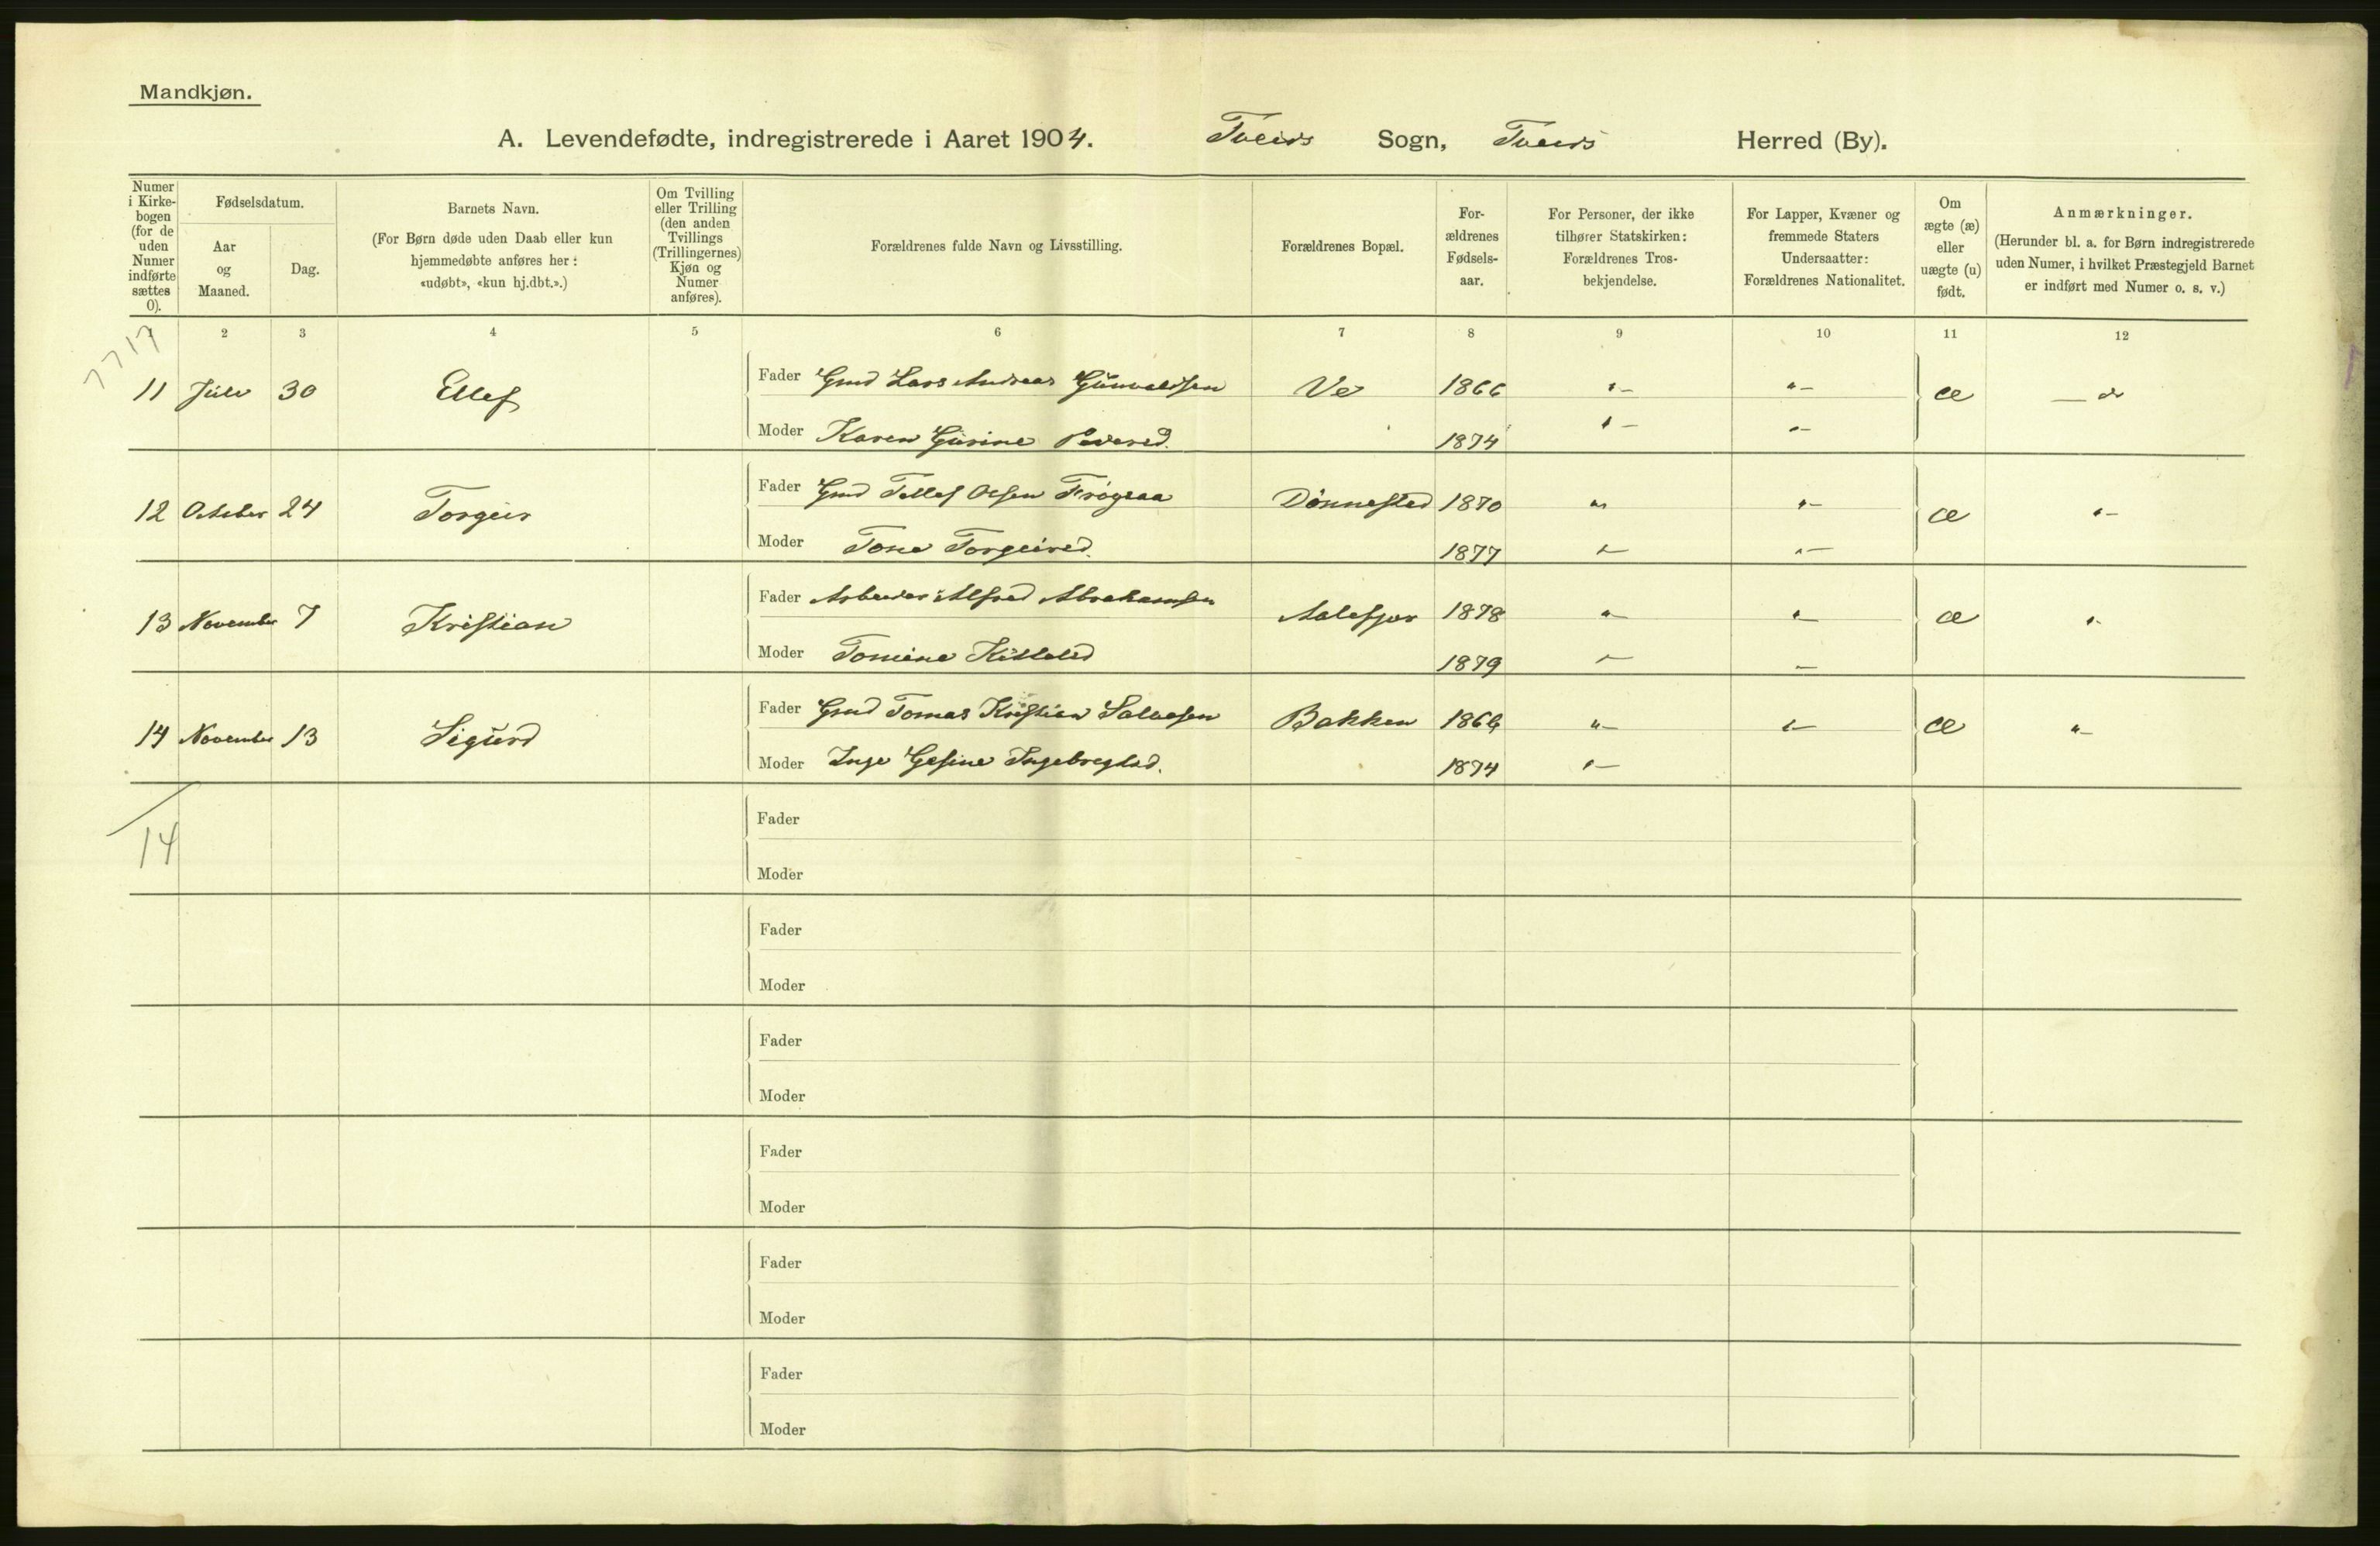 Mandkjøn.
A. Levendefødte, indregistrerede i Aaret 1904. Tveids Sogn, Tveids Herred (By).
Numer i Kirkebogen (for de uden Numer indførte sættes 0).
Fødselsdatum.
Aar og Maaned.
Dag.
Barnets Navn.
(For Børn døde uden Daab eller kun hjemmedøbte anføres her: «udøbt», «kun hj.dbt.».)
Om Tvilling eller Trilling (den anden Tvillings (Trillingernes) Kjøn og Numer anføres).
Forældrenes fulde Navn og Livsstilling.
Forældrenes Bopæl.
Forældrenes Fødselsaar.
For Personer, der ikke tilhører Statskirken: Forældrenes Trosbekjendelse.
For Lapper, Kvæner og fremmede Staters Undersaatter: Forældrenes Nationalitet.
Om ægte (æ) eller uægte (u) født.
Anmærkninger.
(Herunder bl. a. for Børn indregistrerede uden Numer, i hvilket Præstegjeld Barnet er indført med Numer o. s. v.)
1 2 3 4 5 6 7 8 9 10 11 12
7717
11 Juli 30 Ellef Fader Gmd Lars Andreas Gunvaldsen Ve 1866 "- "- æ
Moder Karen Gurine 1874 "- "-
12 October 24 Torgeir Fader Gmd Tellef Olsen Drønnestad 1870 " "- æ "-
Moder Tone Torgeirsd. 1877 "- "-
13 November 7 Kristian Fader Arbeider Alfred Abrahamsen Aalefjær 1878 "- "- æ "-
Moder Tomine 1879 "- "-
14 November 13 Sigurd Fader Gmd Tomas Kristian Salvesen Bakken 1866 "- "- æ "-
Moder Inge Gesine Ingebregtsd. 1874 "-
14
Fader
Moder
Fader
Moder
Fader
Moder
Fader
Moder
Fader
Moder
Fader
Moder